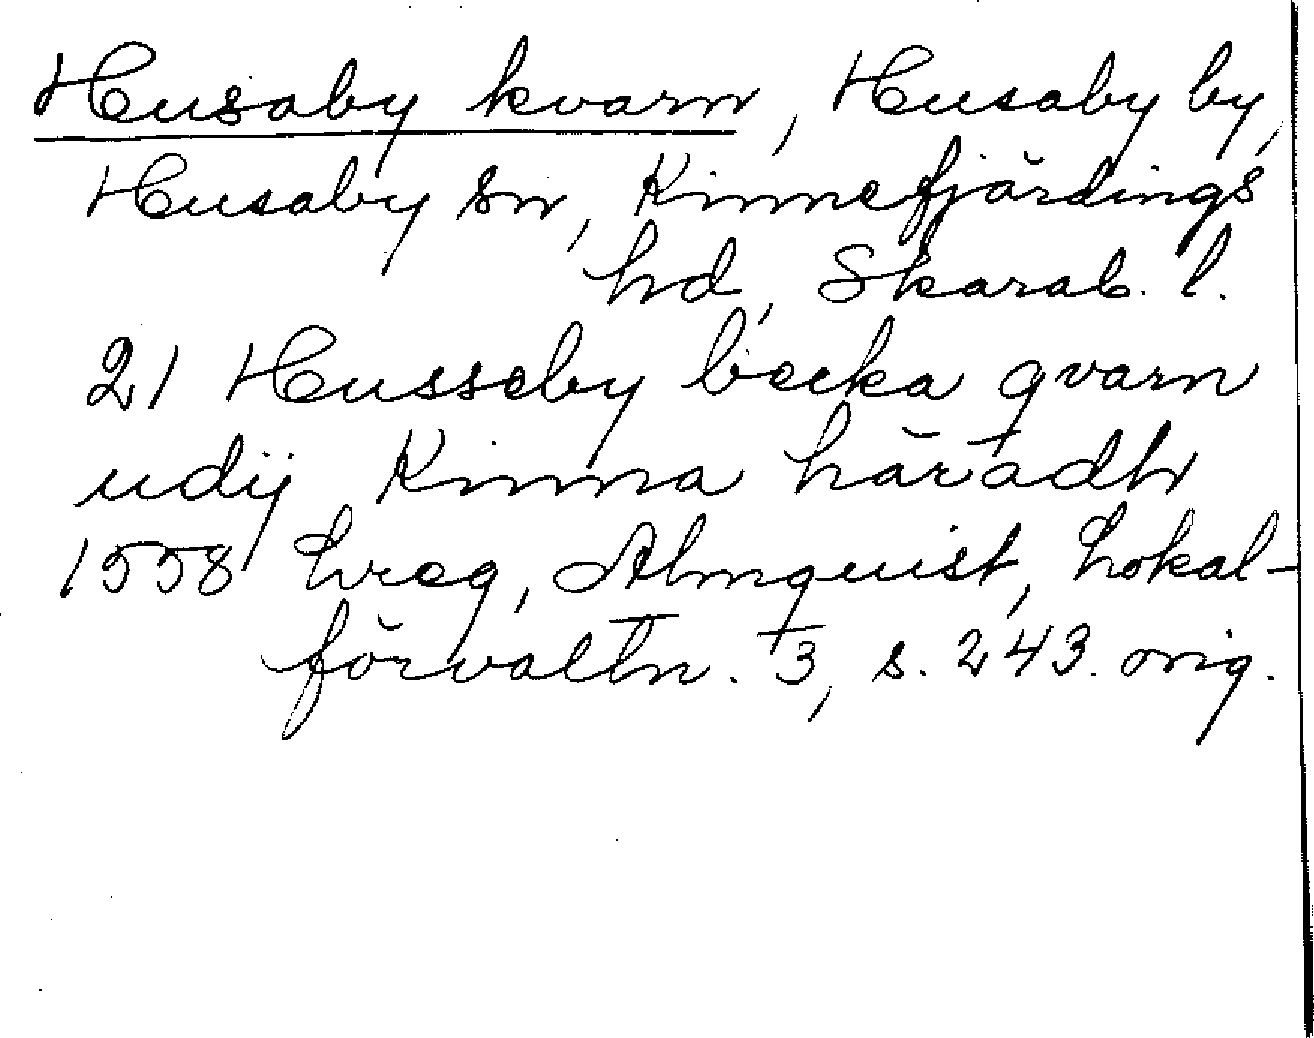 Husaby kvarn, Husaby by,
Husaby sn, Kinnefjärdings
hd, Skarab. l.
21 Husseby becka qvarn
udij Kinna häradh
1558 Lreg, Almquist, Lokal-
förvaltn. 3, s. 243. orig.